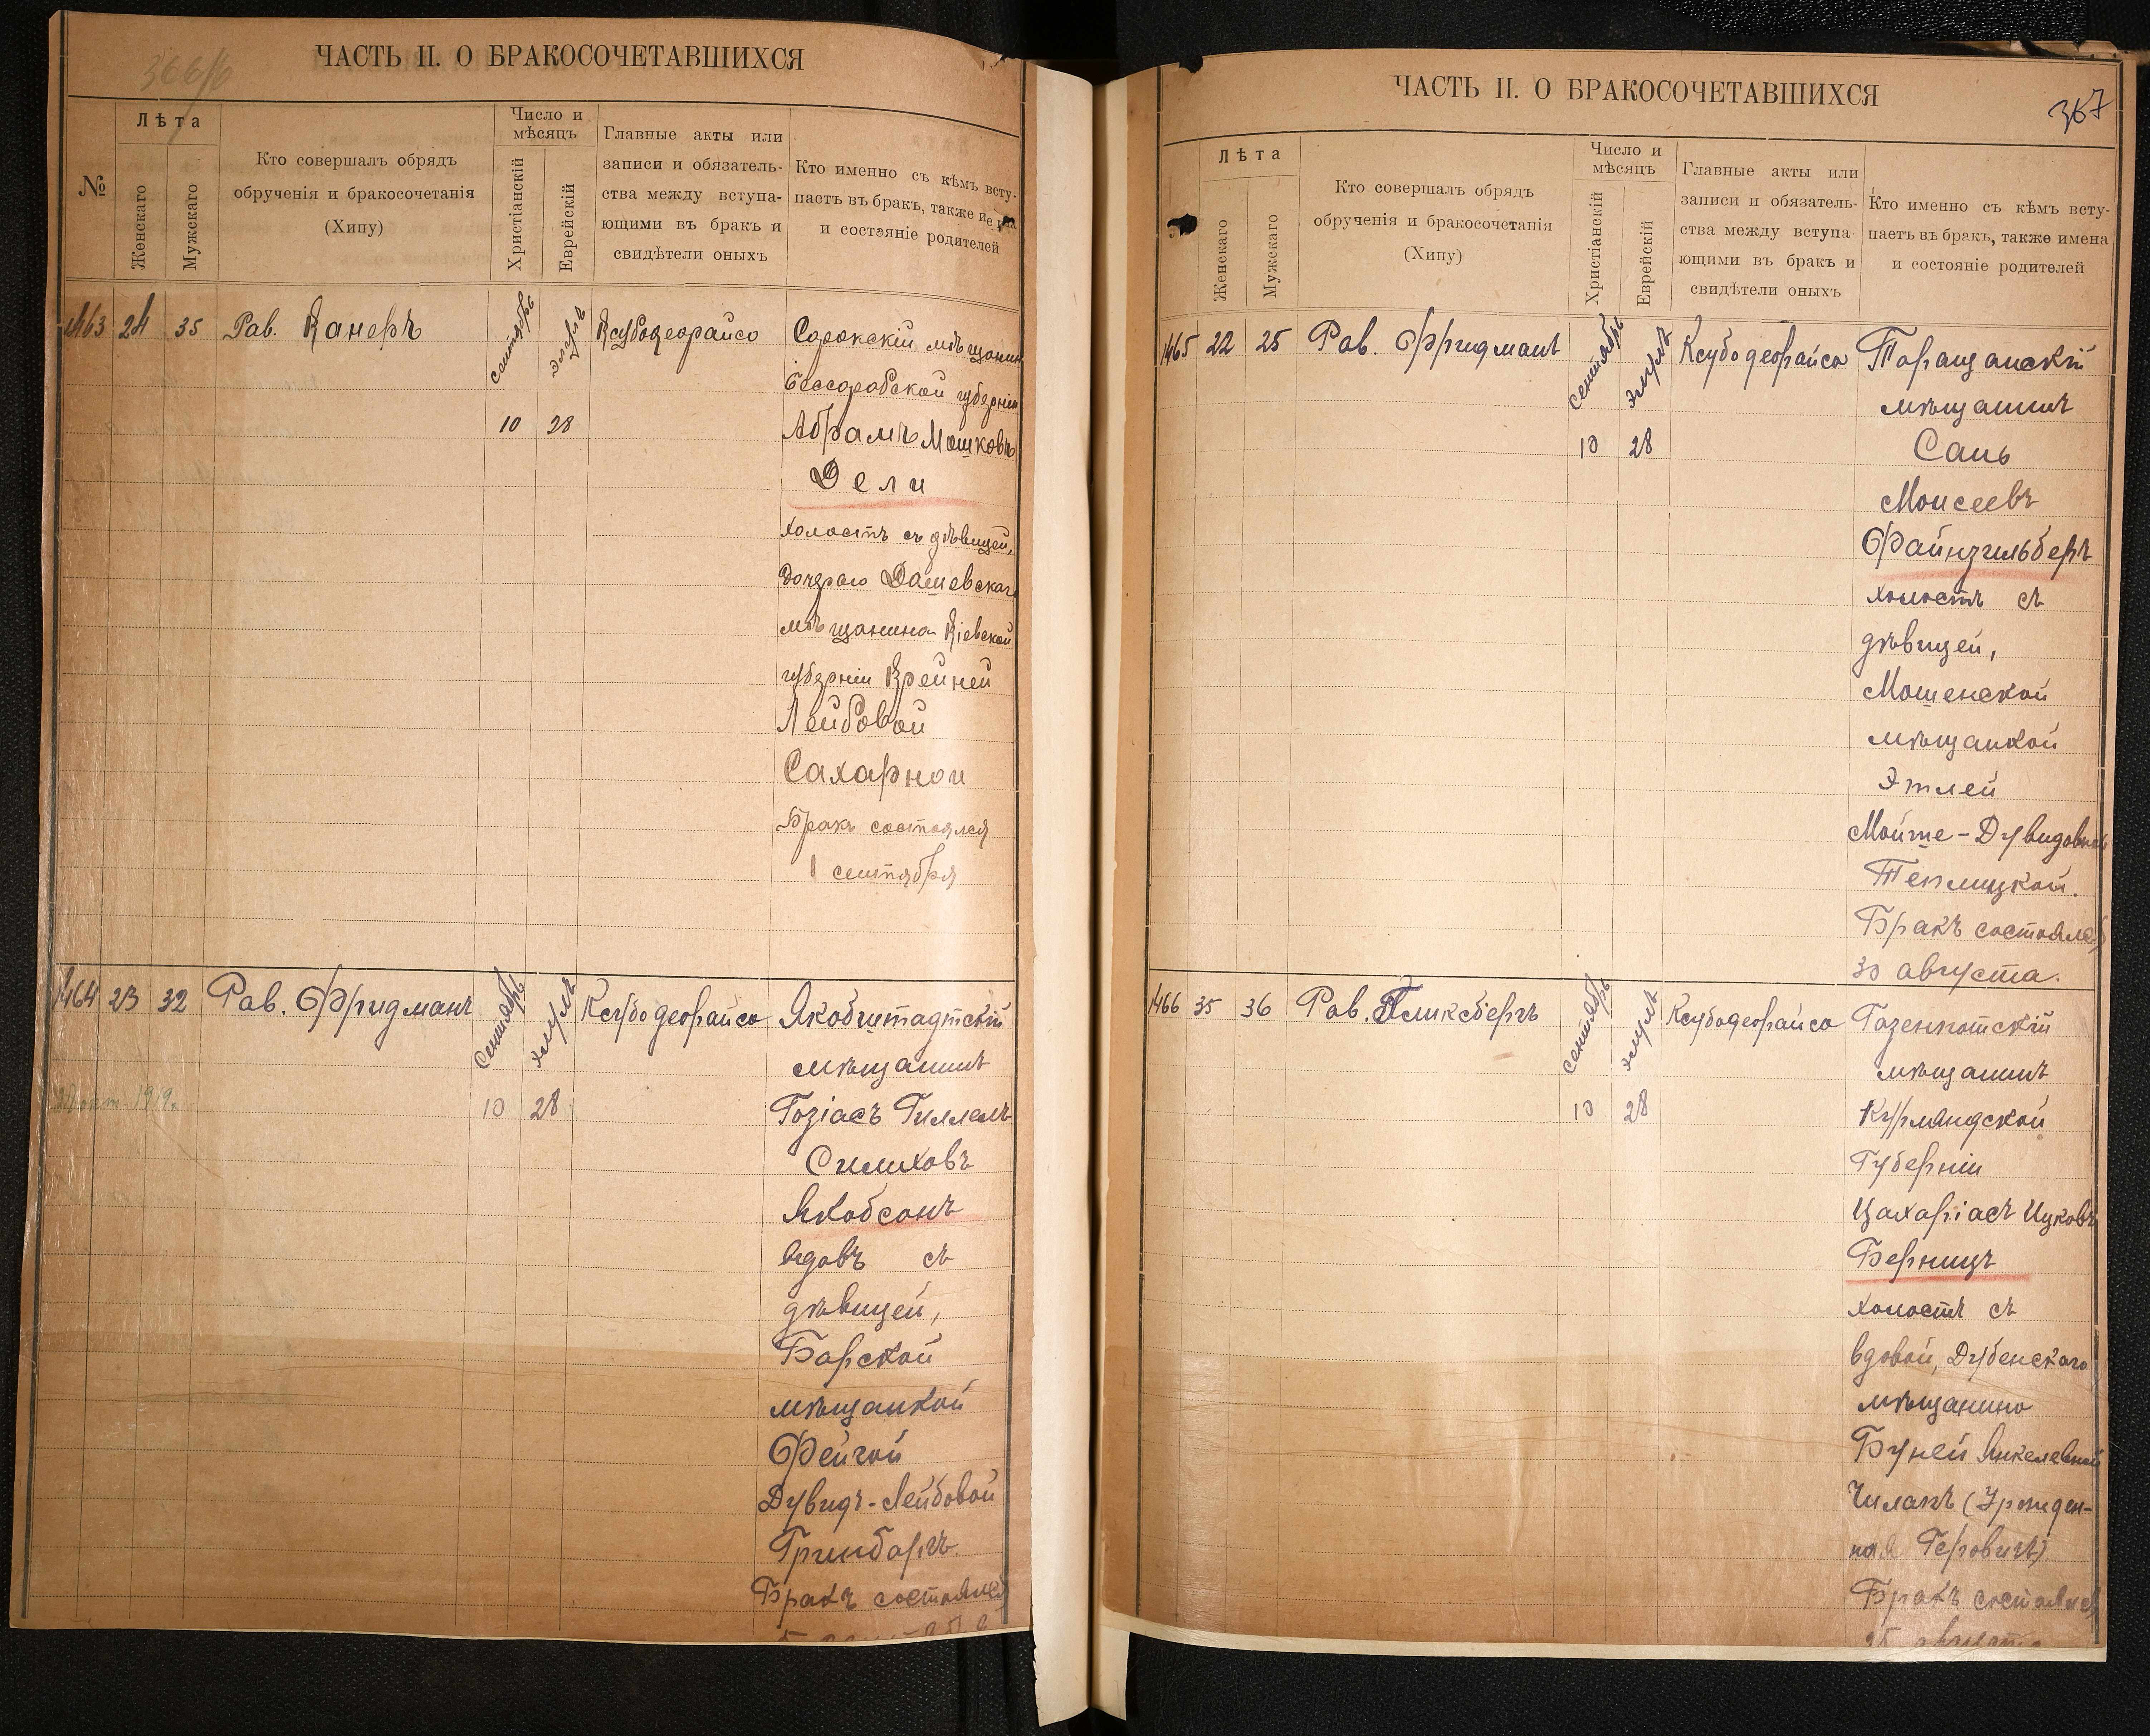 366/б
ЧАСТЬ II. О БРАКОСОЧЕТАВШИХСЯ
№
Лѣта
Женскаго
Мужскаго
Кто совершалъ обрядъ
обрученія и бракосочетанія
(Хипу)
Число и
мѣсяцъ
Христіанскій
Еврейскій
Главные акты или
записи и обязатель-
ства между вступа-
ющими въ бракъ и
свидѣтели оныхъ
Кто именно съ кѣмъ всту-
паетъ въ бракъ, также
и состояніе родителей
1463 24 35 Рав. Канеръ сентябрь элулъ Ксубодеорайсо Сорокскій мѣщанинъ
Бессарабской губерніи
10 28 Абрамъ Мошковъ
Дели
холостъ съ дѣвицей,
дочерью Дашевскаго
мѣщанина Кіевской
губерніи Крейней
Лейбовой
Сахарной
Бракъ состоялся
1 сентября
1464 23 32 Рав. Фридманъ сентябрь элулъ Ксубодеорайсо Якобштадтскій
мѣщанинъ
1919г. 10 28 Гозіасъ Гиллель
Симховъ
Якобсонъ
вдовъ съ
дѣвицей,
Барской
мѣщанкой
Фейгой
Дувидъ-Лейбовой
Гринбаргъ.
Бракъ состоялся
ЧАСТЬ II. О БРАКОСОЧЕТАВШИХСЯ
367
Лѣта
Женскаго
Мужскаго
Кто совершалъ обрядъ
обрученія и бракосочетанія
(Хипу)
Число и
мѣсяцъ
Христіанскій
Еврейскій
Главные акты или
записи и обязатель-
ства между вступа-
ющими въ бракъ и
свидѣтели оныхъ
Кто именно съ кѣмъ всту-
паетъ въ бракъ, также имена
и состояніе родителей
1465 22 25 Рав. Фридманъ сентябрь элулъ Ксубодеорайсо Таращанскій
мѣщанинъ
10 28 Саль
Моисеевъ
Файнзильберъ
холостъ съ
дѣвицей,
Мошенской
мѣщанкой
Этлей
Мойше-Дувидовной
Теплицкой.
Бракъ состоялся
30 августа.
1466 35 36 Рав. Гликсбергъ сентябрь элулъ Ксубодеорайсо Газенпотскій
мѣщанинъ
10 28 Курляндской
Губерніи
Цахаріасъ Ицковъ
Берницъ
холостъ съ
вдовой, Дубенскаго
мѣщанина
Буней Янкелевной
Чилакъ (Урожден-
ная Геровичъ)
Бракъ состоялся
25 августа